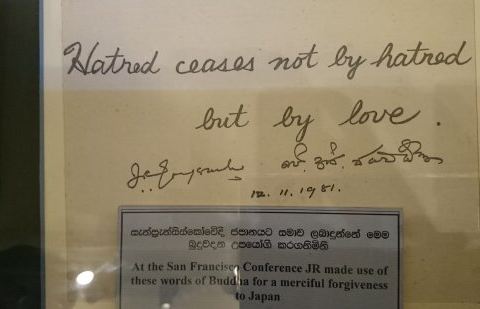 Hatred ceases not by hatred
but by love.
ජේ. ආර්. ජයවර්ධන
12. 11. 1981.
සැන්ෆ්‍රැන්සිස්කෝවේදී ජපානයට සමාව ලබාදුන්නේ මෙම
බුදුවදන උපයෝගී කරගනිමිනි
At the San Francisco Conference JR made use of
these words of Buddha for a merciful forgiveness
to Japan